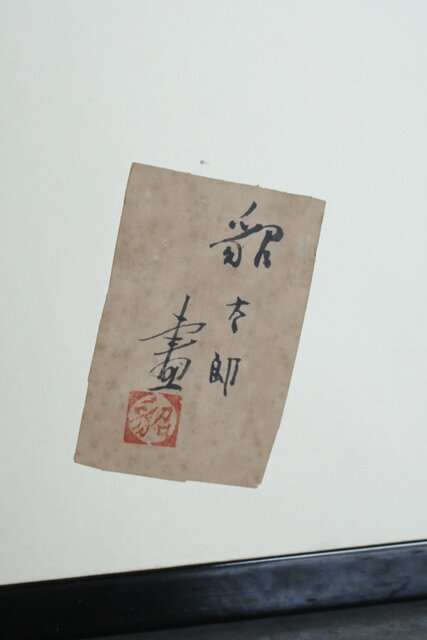 貂太郎
畫
貂